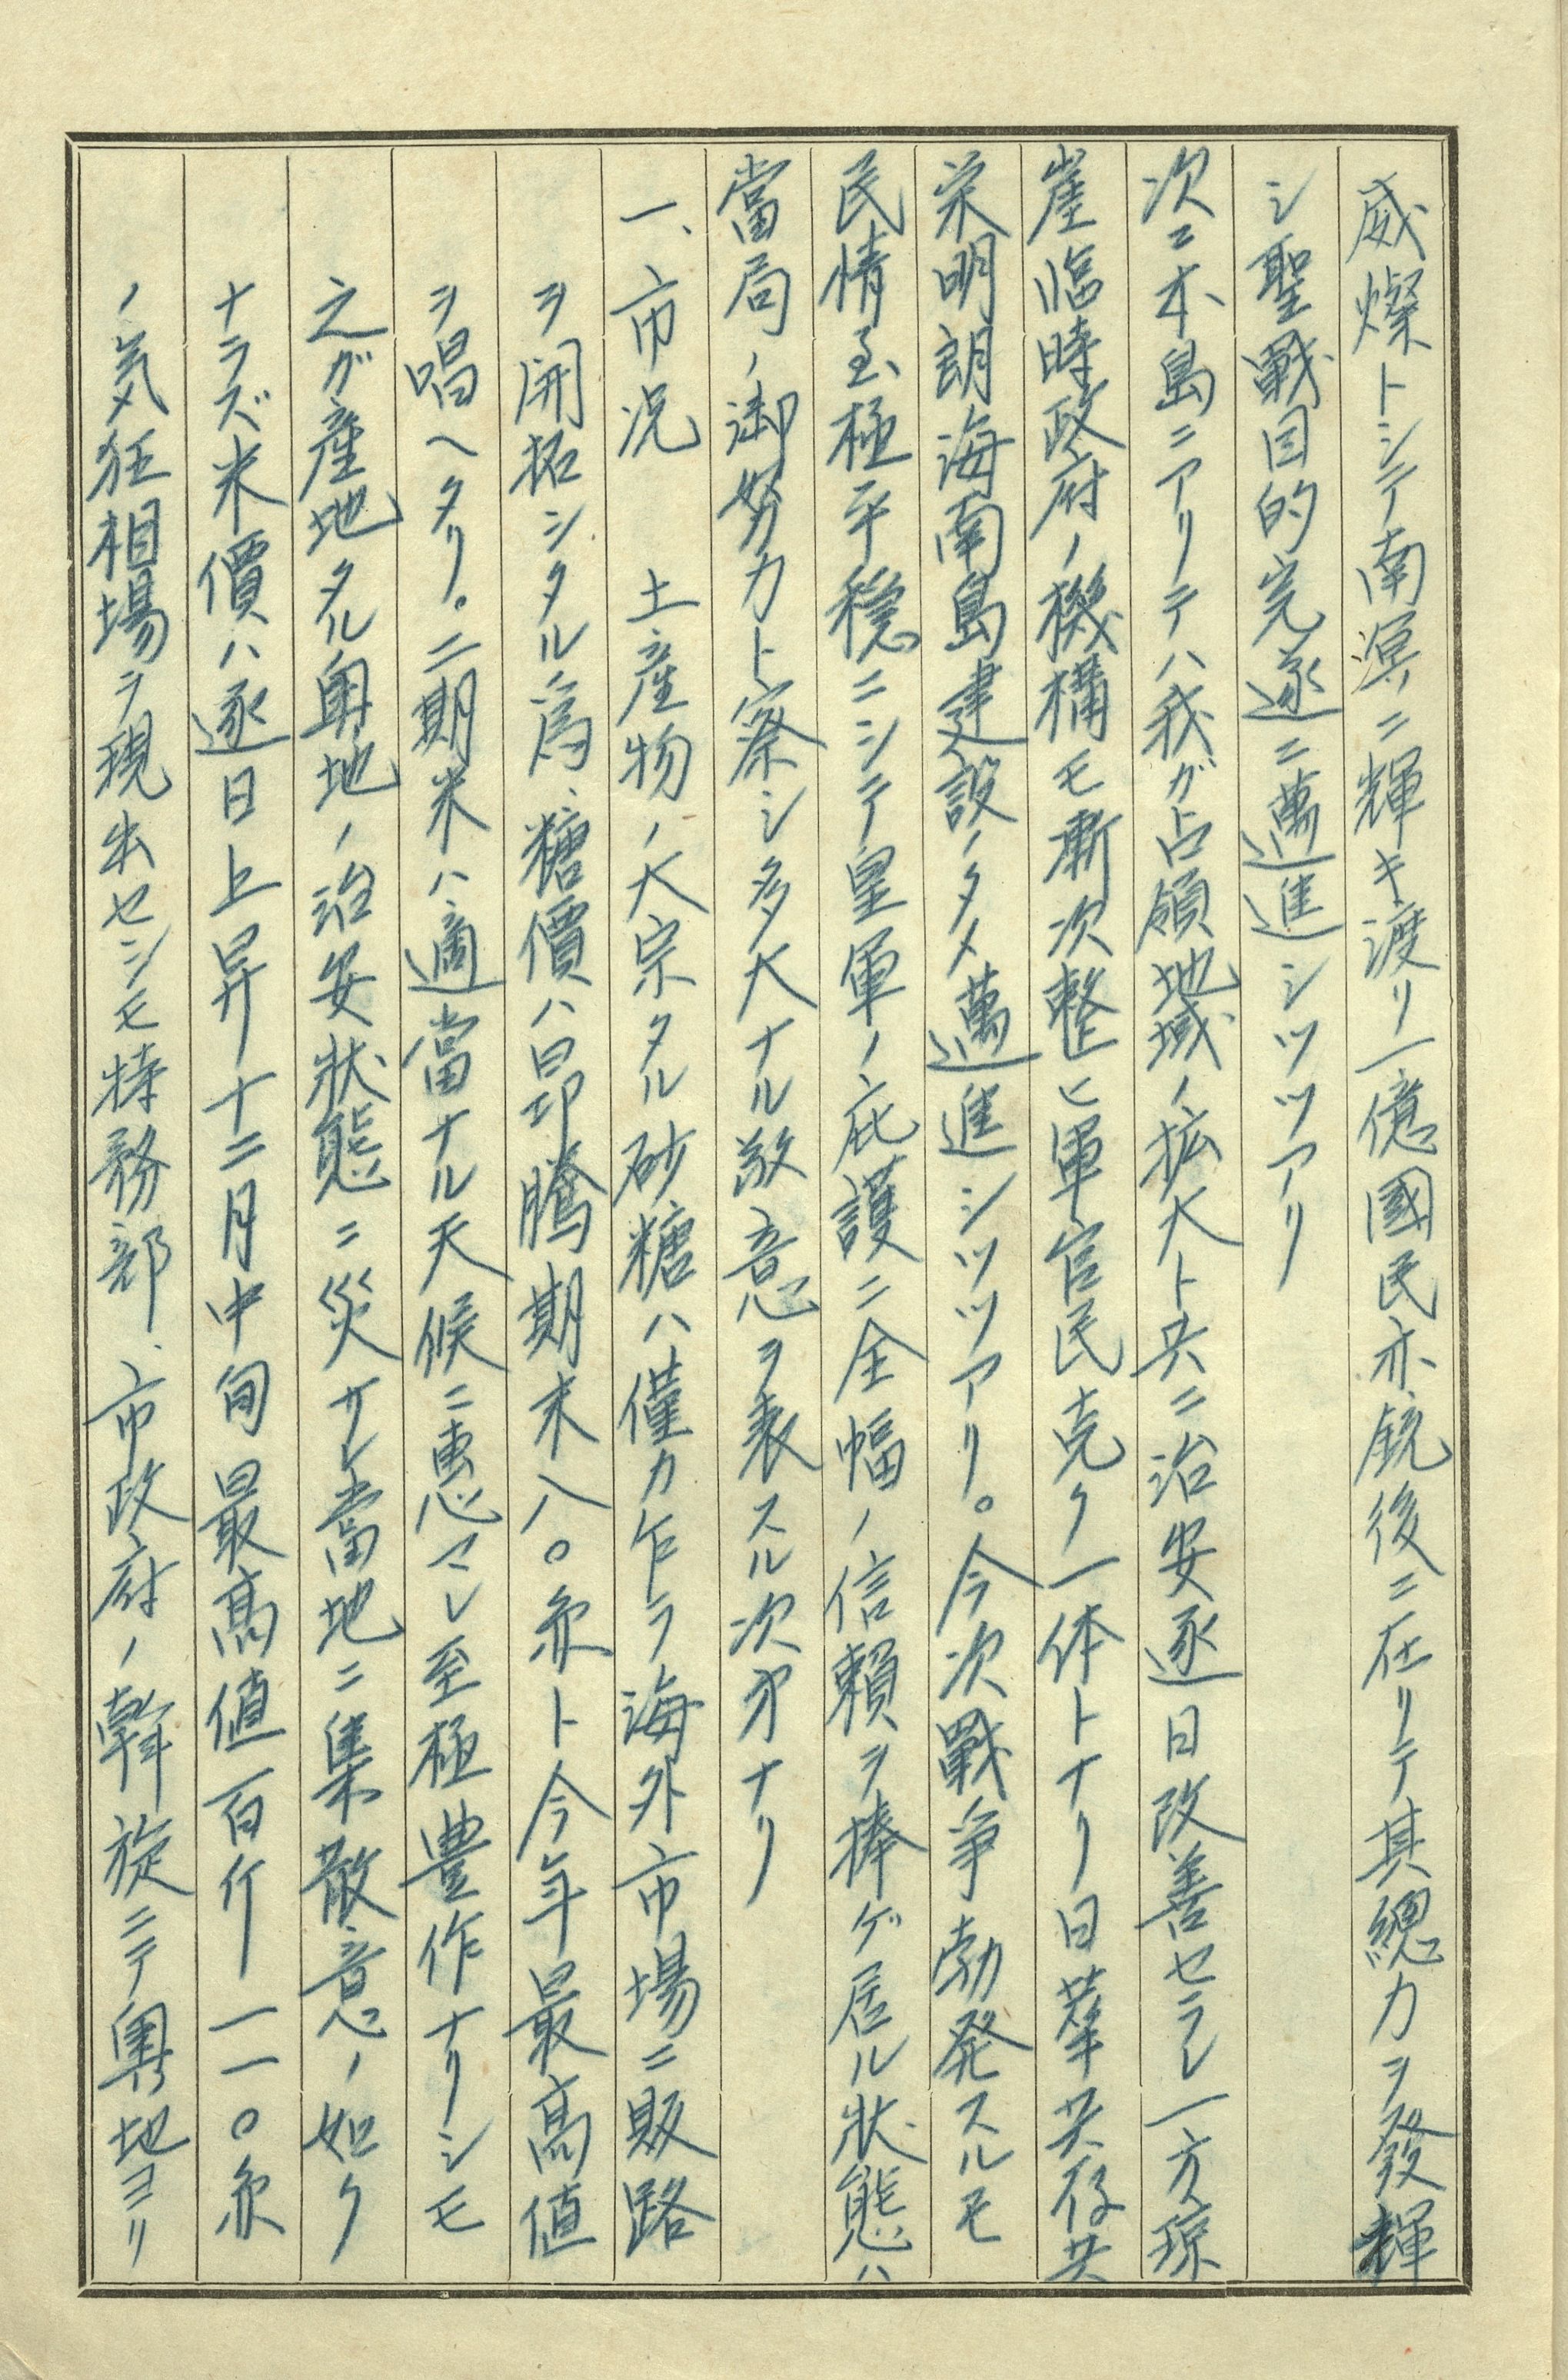 威燦トシテ南溟ニ輝キ渡リ一億國民亦銃後ニ在リテ其總力ヲ發輝
シ聖戰目的完遂ニ邁進シツツアリ
次ニ本島ニアリテハ我ガ占領地域ノ拡大ト共ニ治安逐日改善セラレ一方瓊
崖臨時政府ノ機構モ漸次整ヒ軍官民克ク一体トナリ日華共存共
栄明朗海南島建設ノタメ邁進シツツアリ。今次戰爭勃発スルモ
民情至極平穏ニシテ皇軍ノ庇護ニ全幅ノ信頼ヲ捧ゲ居ル状態ハ
當局ノ御努力ト察シ多大ナル敬意ヲ表スル次第ナリ
一、市況　土産物ノ大宗タル砂糖ハ僅カ乍ラ海外市場ニ販路
ヲ開拓シタル為、糖價ハ昂騰期末八〇弗ト今年最高値
ヲ唱ヘタリ。二期米ハ適當ナル天候ニ恵マレ至極豊作ナリシモ
之ガ産地タル奥地ノ治安状態ニ災サレ當地ニ集散意ノ如ク
ナラズ米價ハ逐日上昇十二月中旬最高値百斤一一〇弗
ノ気狂相場ヲ現出セシモ特務部、市政府ノ斡旋ニテ奥地ヨリ